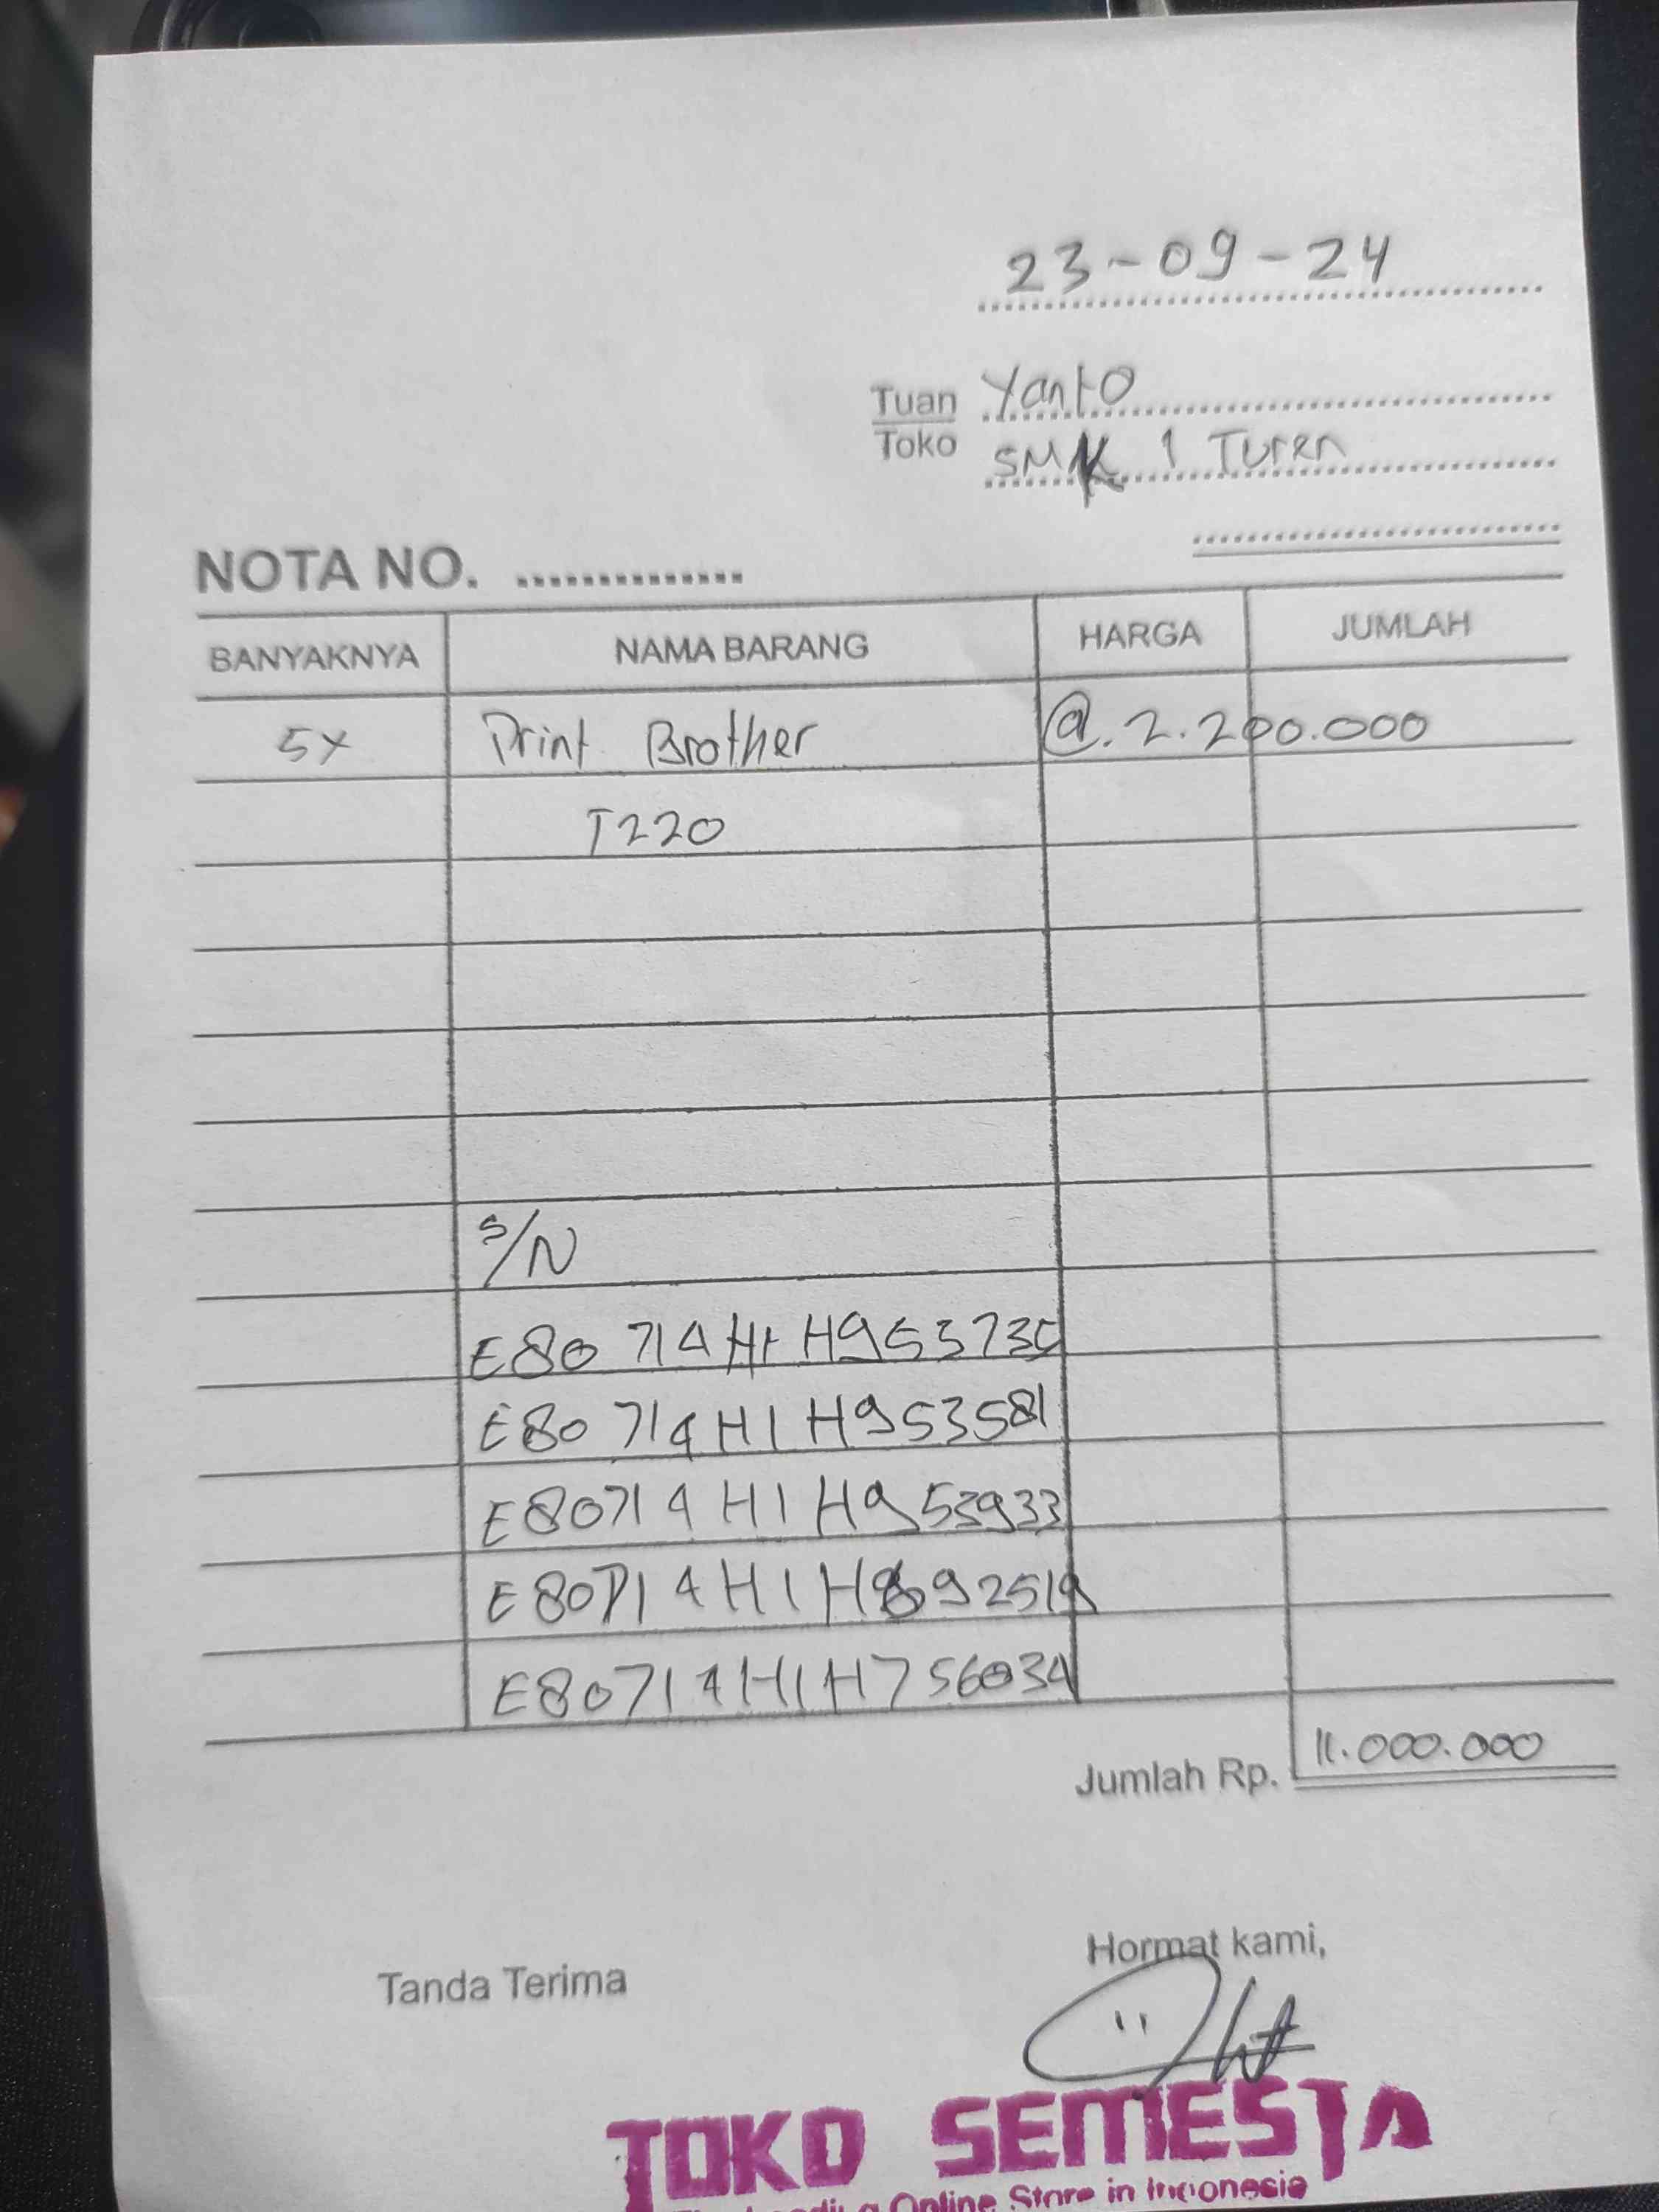 23-09-24
Tuan Yanto
Toko SMK 1 Turen
NOTA NO. ..............
BANYAKNYA NAMA BARANG HARGA JUMLAH
5x Print Brother @.2.200.000
T220
S/N
E80714H1H953735
E80714H1H953581
E80714H1H953933
E80714H1H892519
E80714H1H756034
Jumlah Rp. 11.000.000
Tanda Terima Hormat kami,
TOKO SEMESTA
Online Store in Indonesia